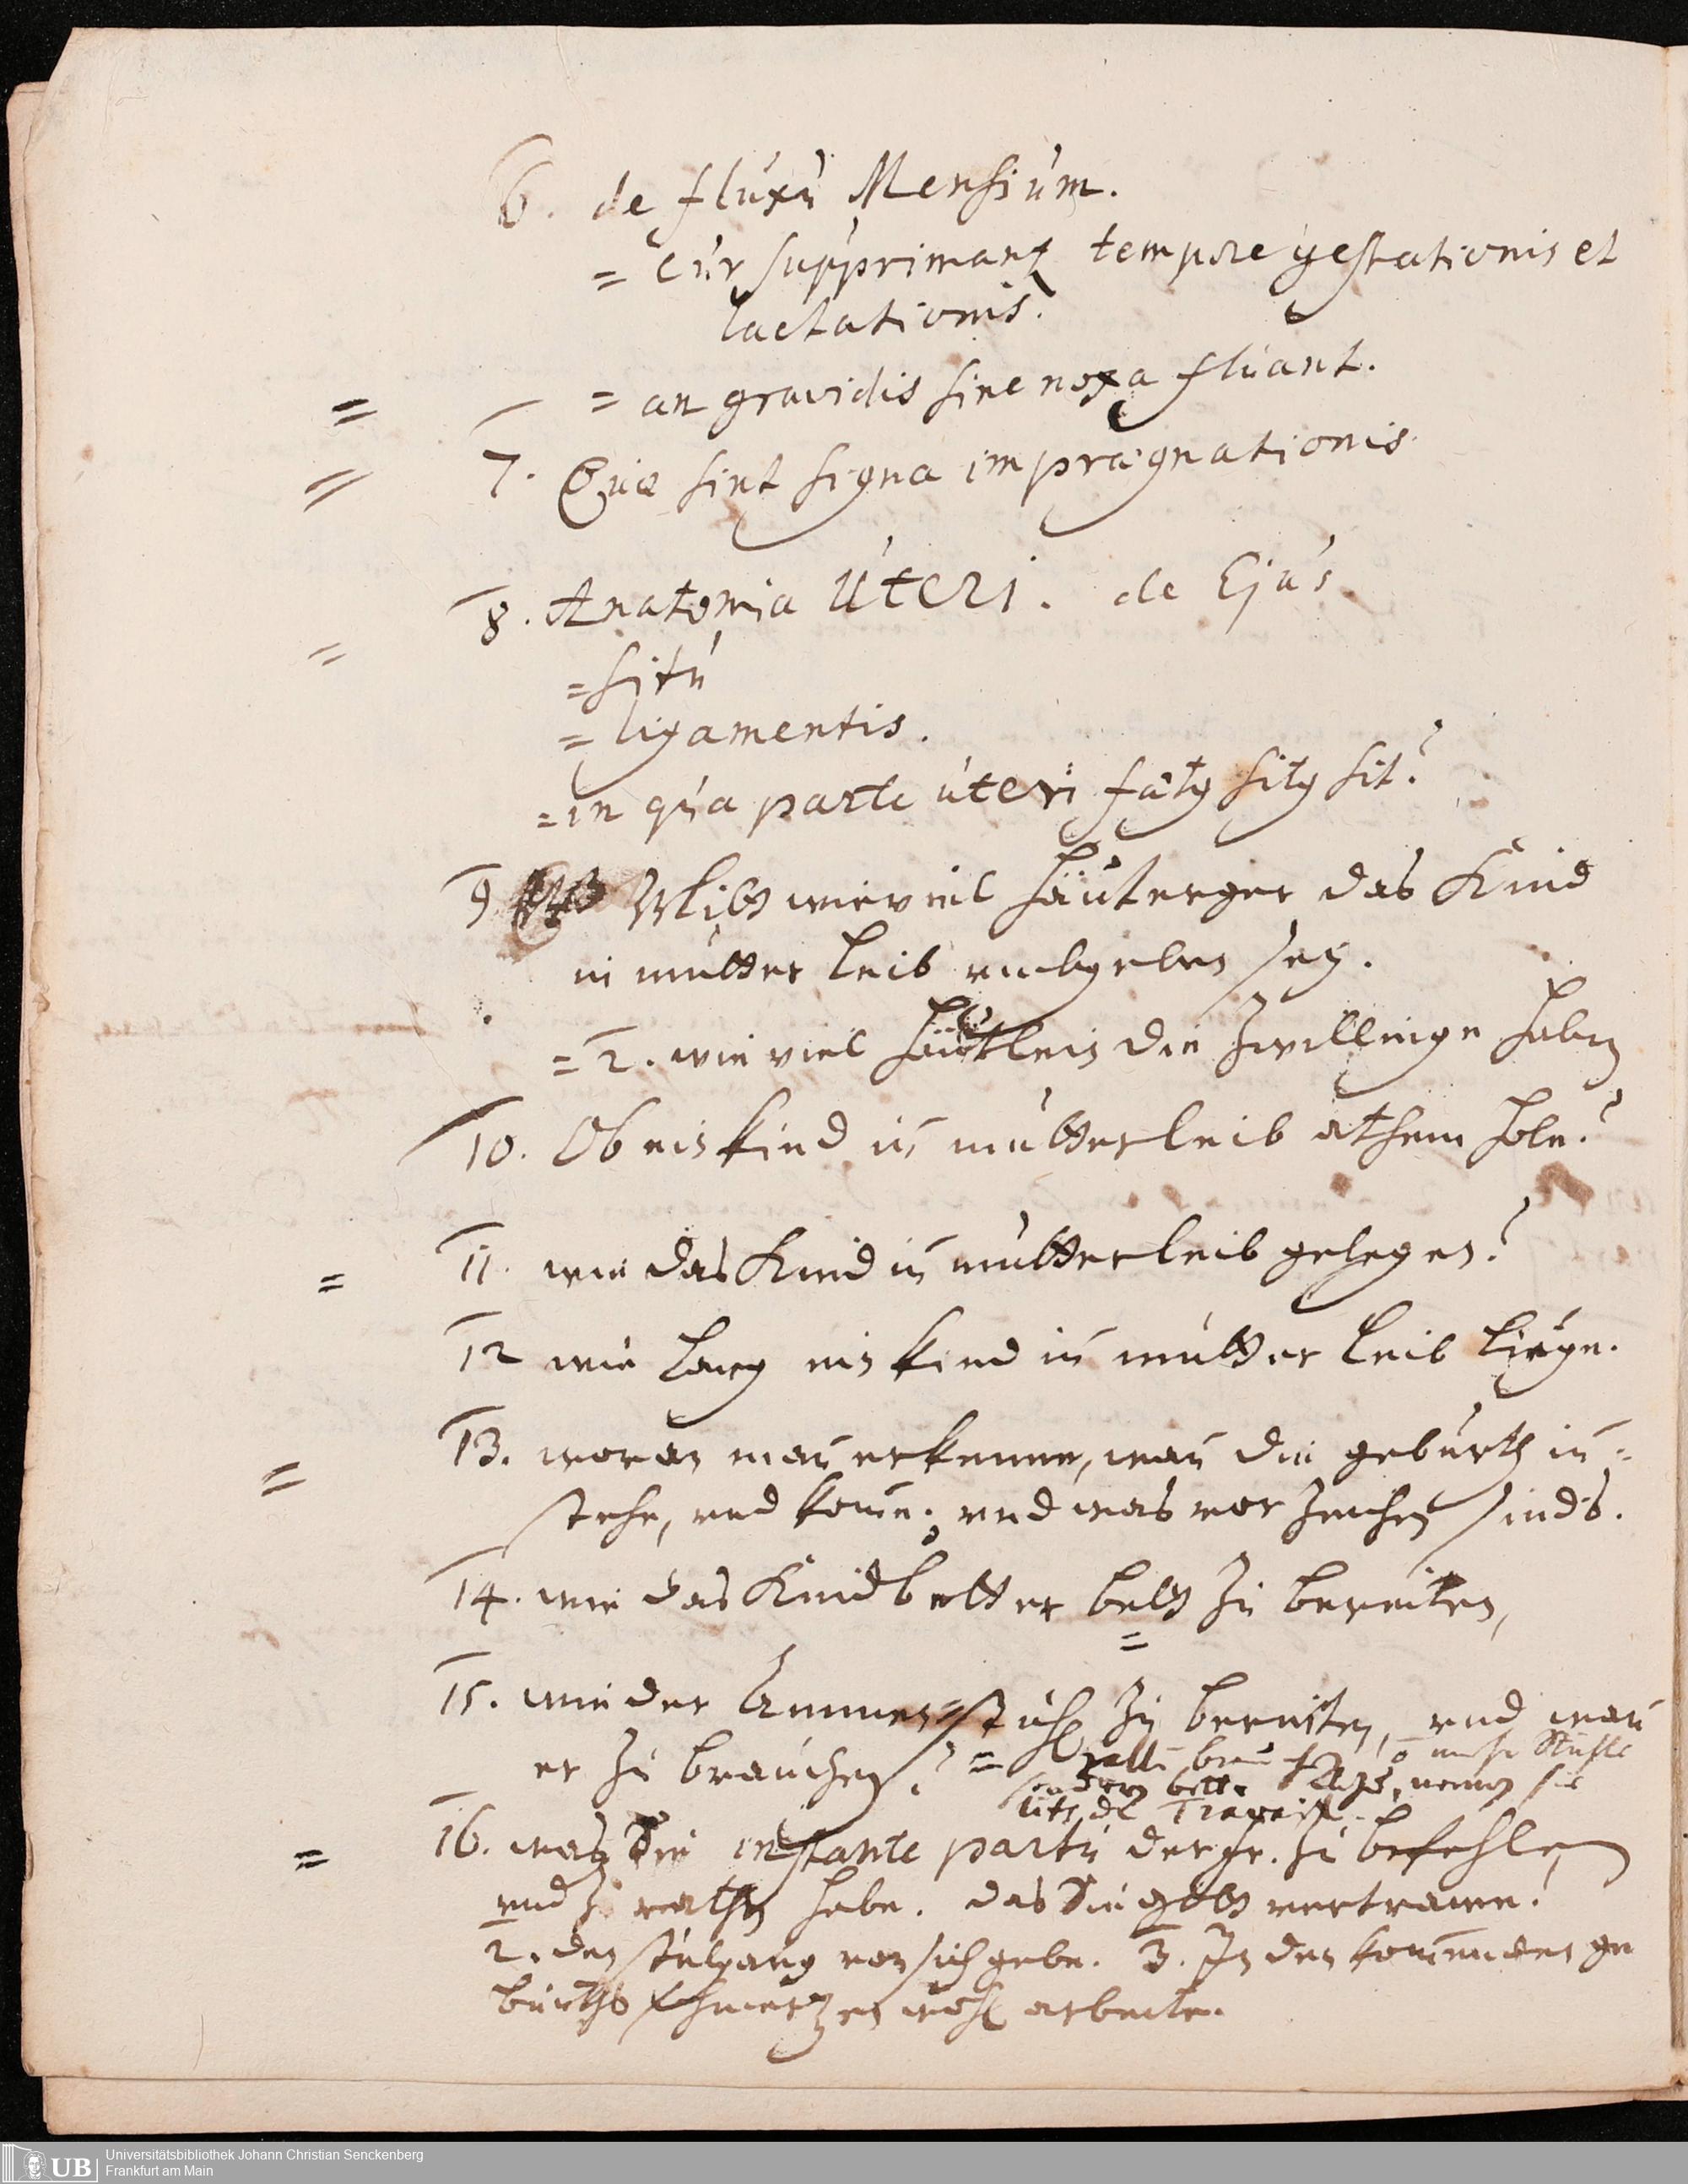 6. de fluxu Mensium.
= cur supprimant tempore gestationis et
lactationis?
= an gravidis sine noxa fluant.
7. Quæ sint signa imprægnationis.
8. Anatomia Uteri. de Ejus
= situ
= ligamentis.
= in qua parte uteri fœtus situs sit?
9 wieviel das Kind
in mutter Leib umbgeben sey.
= 2. wie viel häutlein die Zwillinge haben
10. Ob ein kind in mutterleib athem hole?
11. wie das Kind in mutterleib gelegen?
12 wie lang ein kind in mutter Leib liege.
13. woran man erkenne, wan die geburth in=
stehe, und kome; und was vor Zeichen sinds.
14. wie das Kindbetter beth zu bereiten,
15. wie der Ammen=stuhl zu bereiten, und wan
er zu brauchen? = Stühle
bette
16. was Sie instante partu der fr. zu befehlen
und zu rathen habe. das Sie Gott vertrawe!
2. den stulgang von sich gebe. 3. In den komenden ge
burths schmertzen wohl arbeite.
Universitätsbibliothek Johann Christian Senckenberg
UB Frankfurt am Main